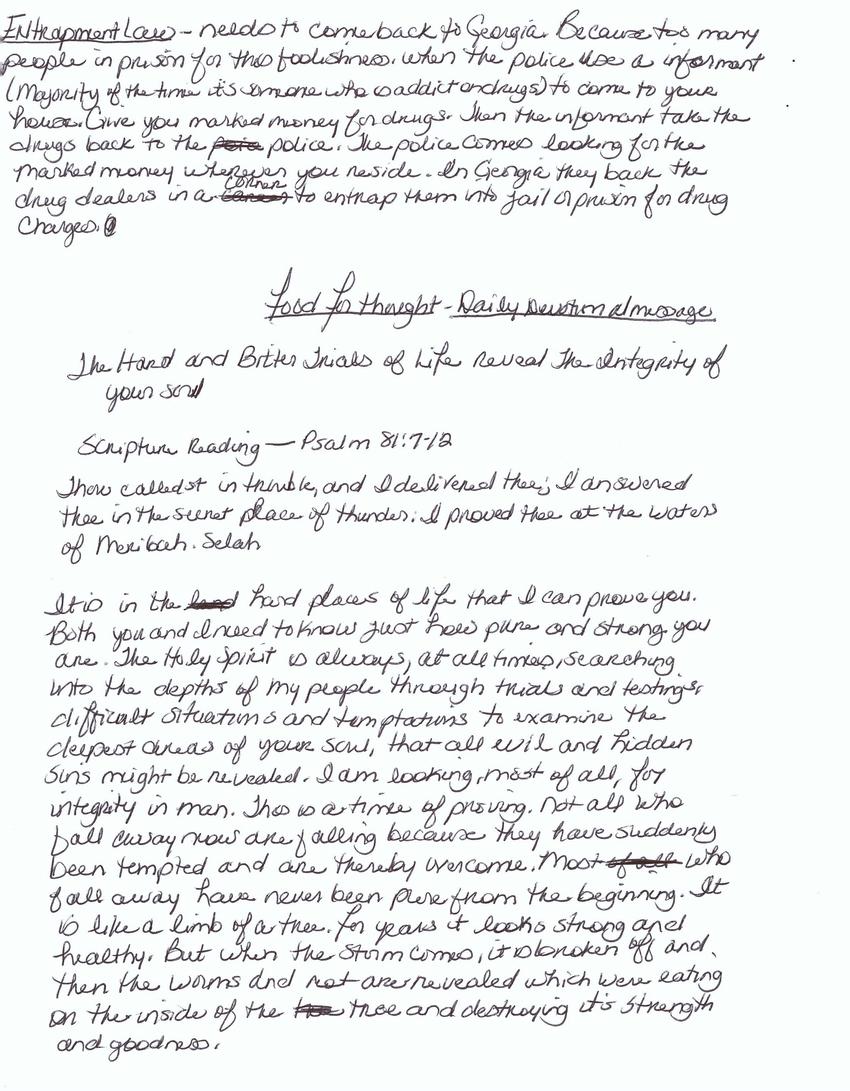 Entrapment Law - needs to come back to Georgia. Because too many
people in prison for this foolishness. when the police use a informant
(Majority of the time it's someone who is addict on drugs) to come to your
house. Give you marked money for drugs. Then the informant take the
drugs back to the police. The police comes looking for the
marked money wherever you reside. In Georgia they back the
drug dealers in a corner to entrap them into jail or prison for drug
Charges.
Food for thought - Daily Devotional message
The Hard and Bitter Trials of Life reveal The Integrity of
your soul
Scripture Reading — Psalm 81:7-12
Thou calledst in trouble, and I delivered thee; I answered
thee in the secret place of thunder: I proved thee at the waters
of Meribah. Selah
It is in the hard places of life that I can prove you.
Both you and I need to know just how pure and strong you
are. The Holy Spirit is always, at all times, searching
into the depths of my people through trials and testings,
difficult situations and temptations to examine the
deepest areas of your soul, that all evil and hidden
sins might be revealed. I am looking, most of all, for
integrity in man. This is a time of proving. Not all who
fall away now are falling because they have suddenly
been tempted and are thereby overcome. Most who
fall away have never been pure from the beginning. It
is like a limb of a tree. for years it looks strong and
healthy. But when the storm comes, it is broken off and
then the worms and rot are revealed which were eating
on the inside of the tree and destroying it's strength
and goodness.